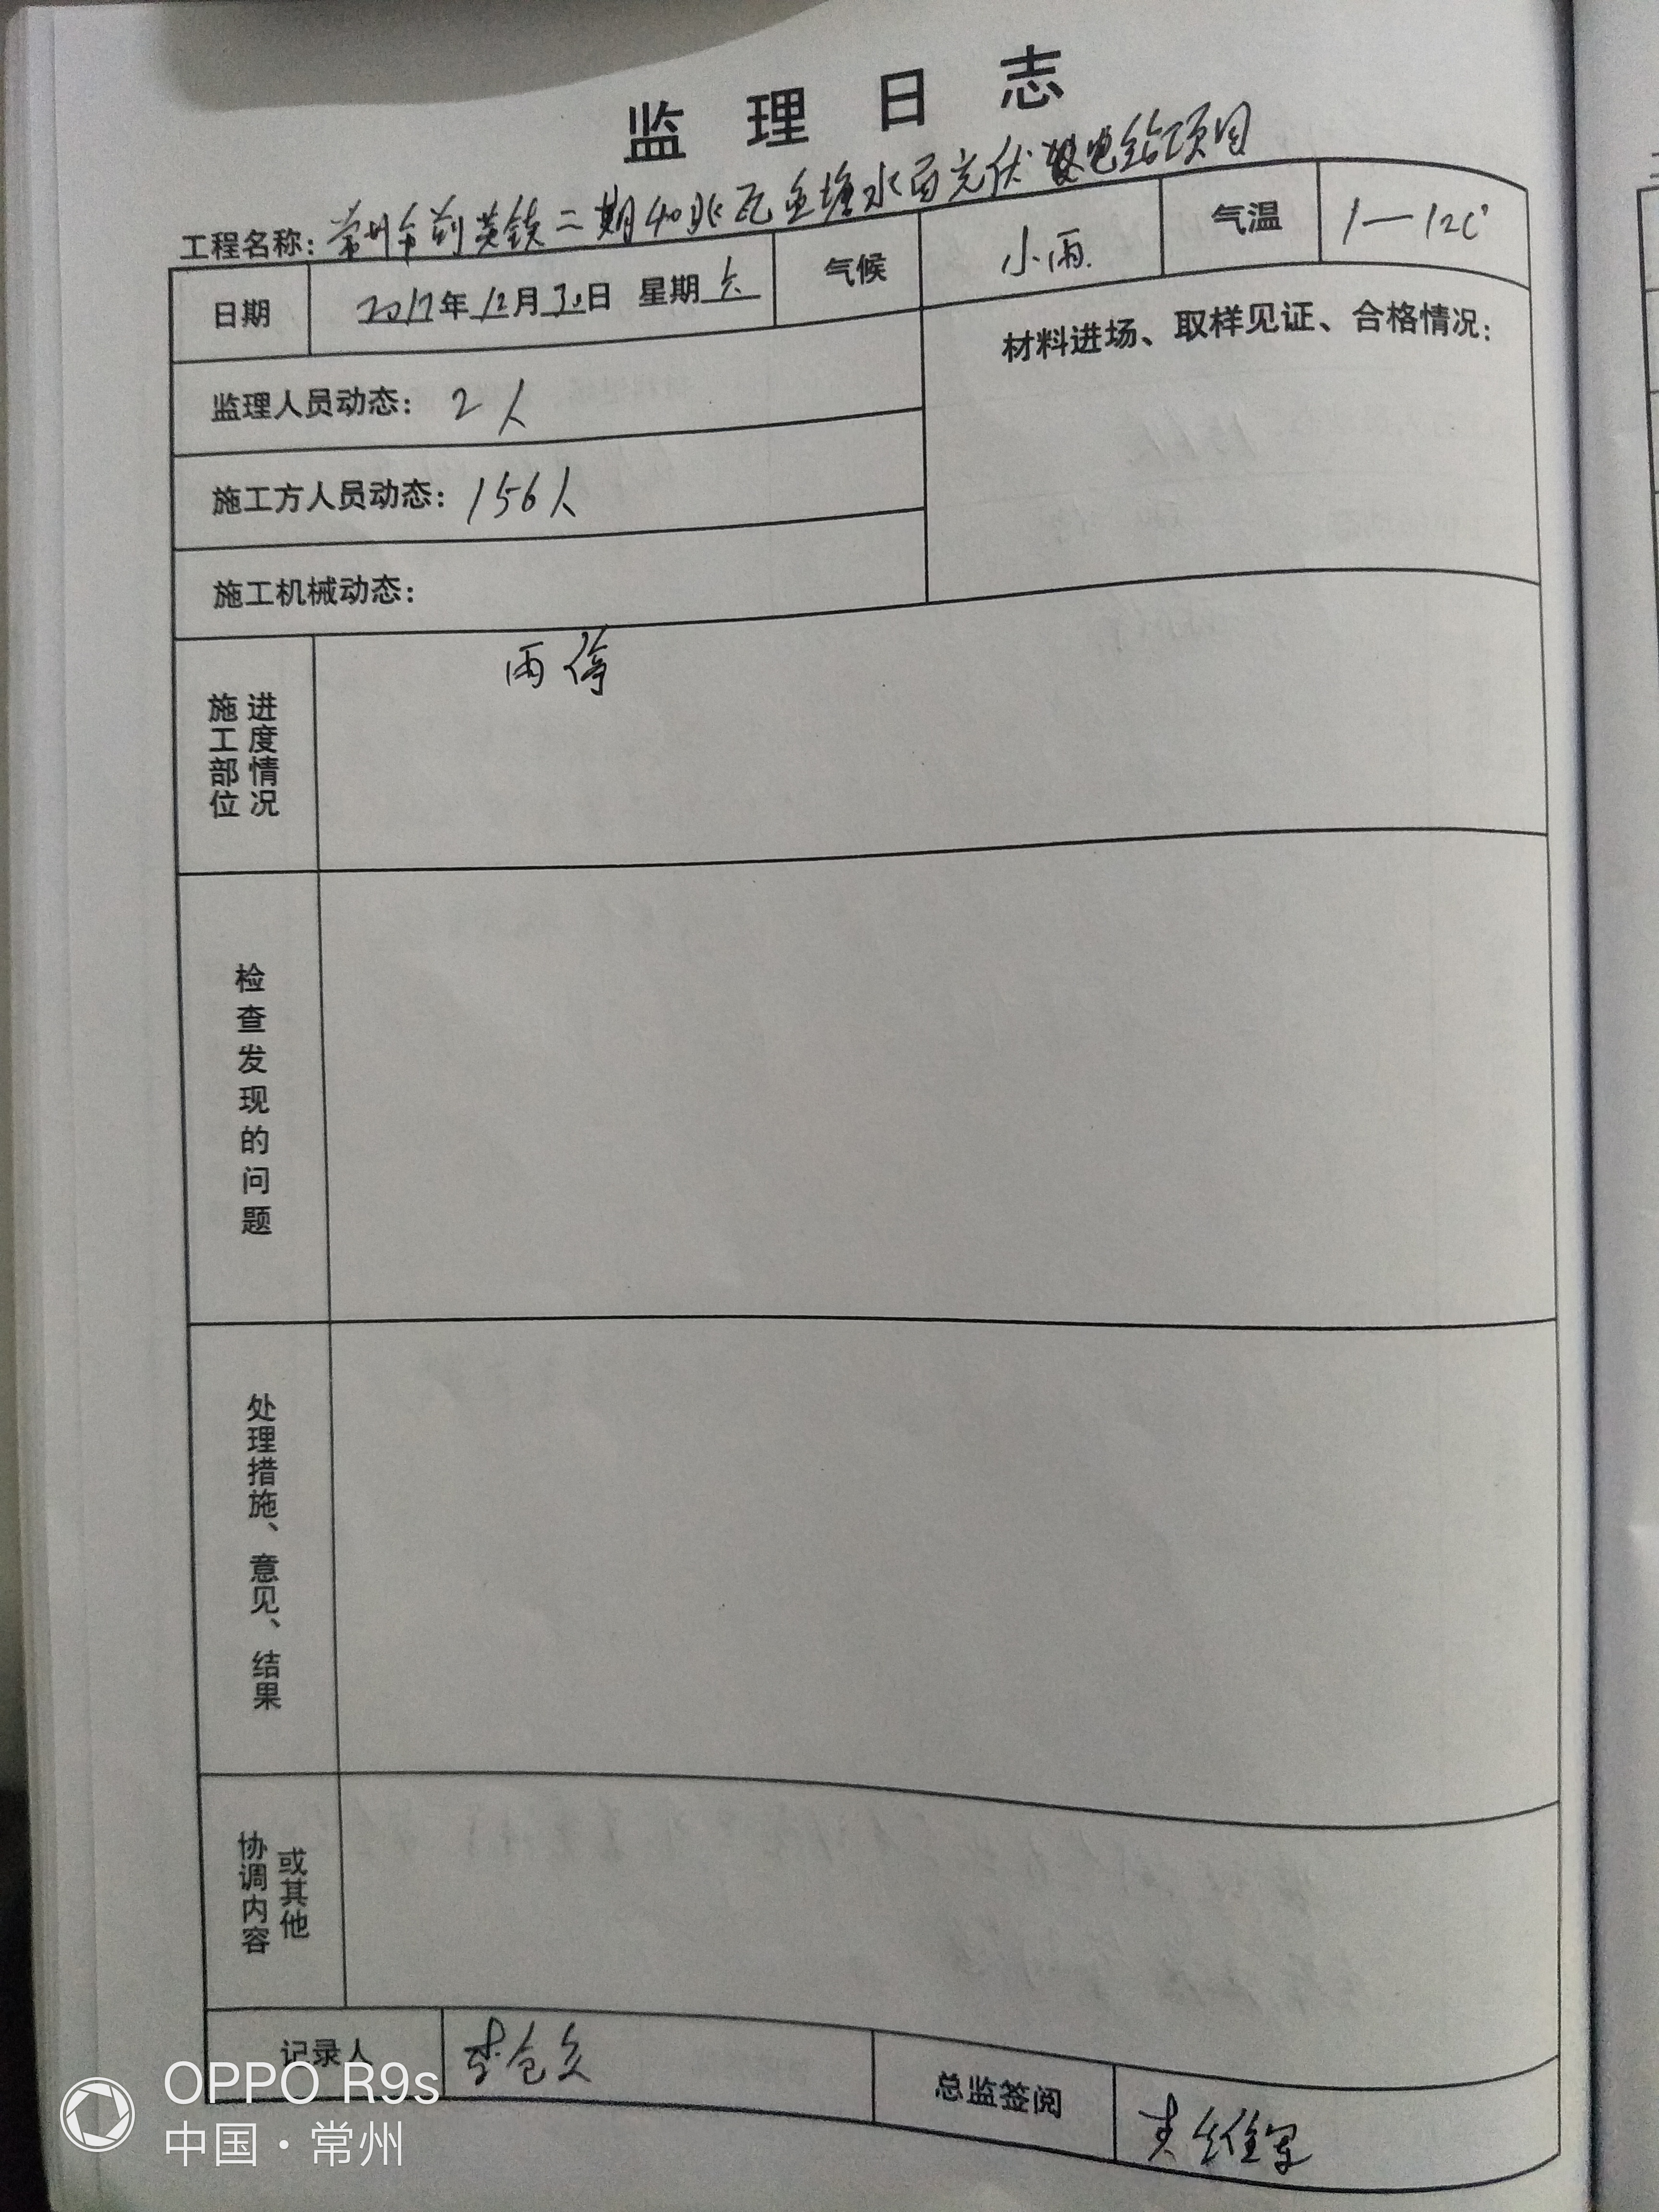 监理日志
工程名称：常州市 二期40兆瓦鱼塘水面光伏发电站项目
日期 2017年12月30日 星期六 气候 小雨 气温 1—12C°
监理人员动态： 2人
材料进场、取样见证、合格情况：
施工方人员动态： 156人
施工机械动态：
施工部位 进度情况
雨停
检查发现的问题
处理措施、意见、结果
协调内容 或其他
记录人 总监签阅
OPPO R9s
中国·常州